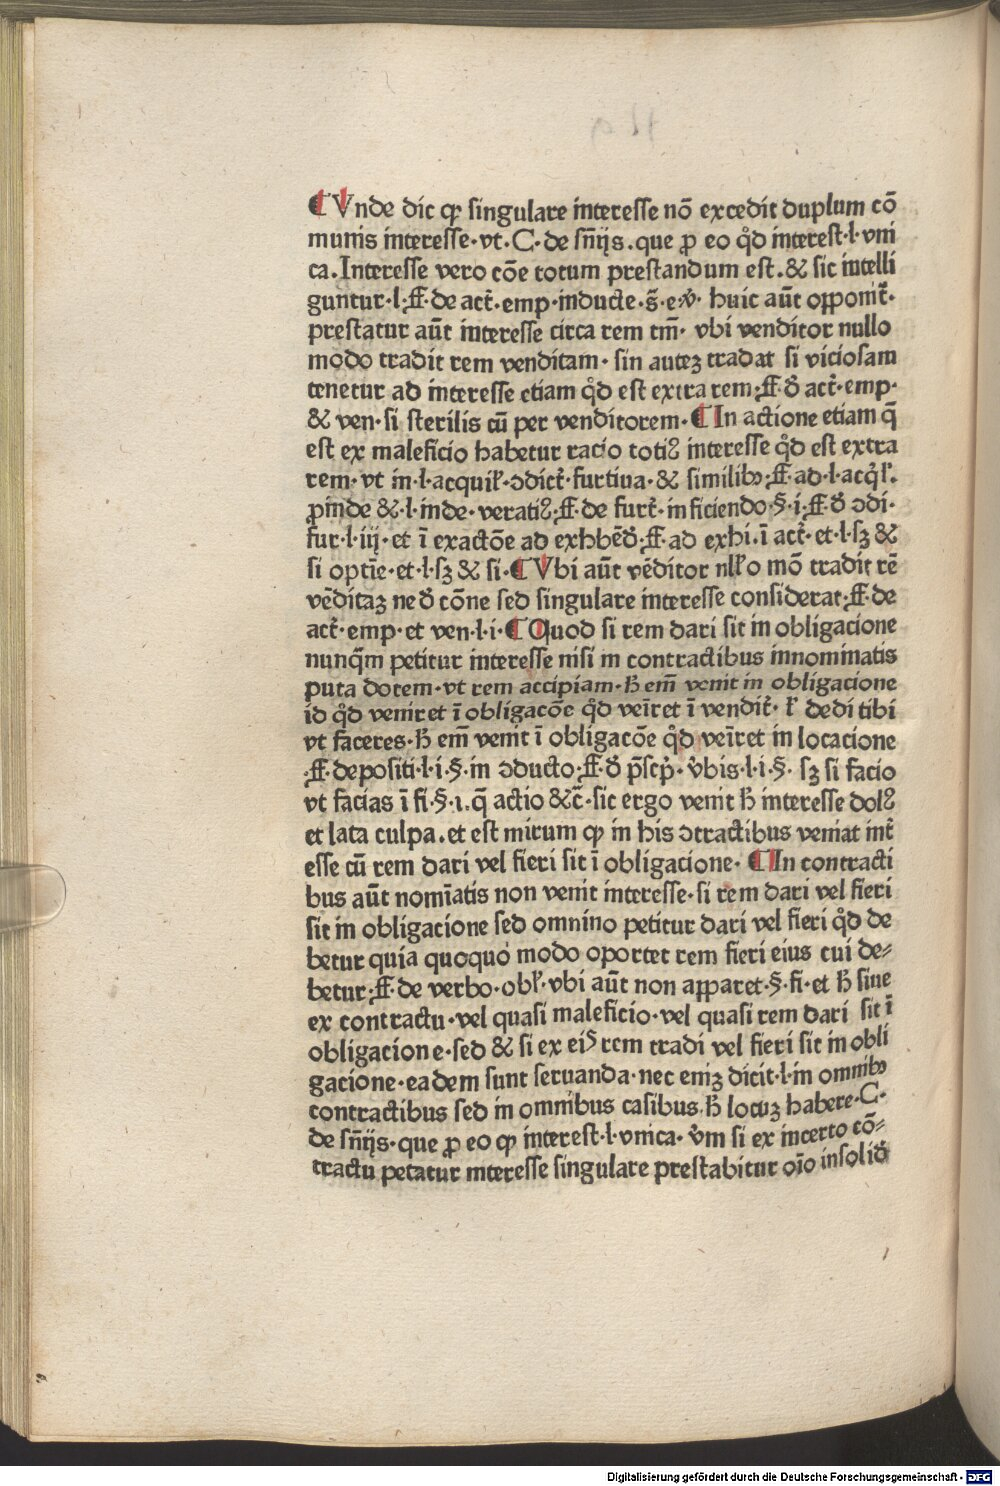 ¶ Vnde dic ꝙ singulare interesse nō excedit duplum cō
munis interesse·vt·C·de sn̄ijs·que ꝓ eo qd̊ interest·l·vni
ca·Interesse vero cōe totum prestandum est·& sic intelli
guntur·l·ff·de act̄·emp·inducte·s̄·e· huic aūt opponit̄·
prestatur aūt interesse circa rem tm̄· vbi venditor nullo
modo tradit rem venditam· sin autez tradat si viciosam
tenetur ad interesse etiam qd̊ est extra rem·ff·đ act̄·emp·
& ven·si sterilis cū per venditorem·¶ In actione etiam q̄
est ex maleficio habetur racio totiꝰ interesse qd̊ est extra
rem·vt in·l·acquiꝉ·ↄdict̄·furtiua·& similibꝫ·ff·ad·l·acq̇ꝉ·
ꝓinde &·l·inde·veratiꝰ·ff·de furt̄·inficiendo·§·i·ff·đ ↄdi·
fur·l·iij·et ī exactōe ad exhbēđ·ff·ad exhi·ī act̄·et·l·sꝫ &
si optīe·et·l·sꝫ & si·¶ Vbi aūt vēditor nlꝉo mō tradit rē
vēditaꝫ ne đ cōne sed singulare interesse considerat·ff·de
act̄·emp·et ven·l·i·¶ Quod si rem dari sit in obligacione
nunq̄m petitur interesse nisi in contractibus innominatis
puta dotem·vt rem accipiam·ħ em̄ venit in obligacione
id qd̊ veniret ī obligacōe qd̊ veīret ī vendit̄· ꝉ dedi tibi
vt faceres·ħ em̄ venit ī obligacōe qd̊ veīret in locacione
·ff·depositi·l·i·§·in ↄducto·ff·đ p̄scp̄·v̄bis·l·i·§· sꝫ si facio
vt facias ī fi·§·i·q̄ actio &c̄·sic ergo venit ħ interesse dolꝰ
et lata culpa·et est mirum ꝙ in his ↄtractibus veniat int̄
esse cū rem dari vel fieri sit ī obligacione· ¶ In contracti
bus aūt nomīatis non venit interesse·si rem dari vel fieri
sit in obligacione sed omnino petitur dari vel fieri qd̊ de
betur quia quoquo modo oportet rem fieri eius cui de⸗
betur·ff·de verbo·obꝉ·vbi aūt non apparet·§·fi·et ħ siue
ex contractu·vel quasi maleficio·vel quasi rem dari sit ī
obligacione·sed & si ex eiꝰ rem tradi vel fieri sit in obli
gacione·eadem sunt seruanda·nec eniꝫ dicit·l·in omnibꝫ
contractibus sed in omnibus casibus·ħ locuꝫ habere·C·
de sn̄ijs·que ꝓ eo ꝙ interest·l·vnica·v̄m si ex incerto cō⸗
tractu petatur interesse singulare prestabitur oīo insoliđ
Digitalisierung gefördert durch die Deutsche Forschungsgemeinschaft · DFG